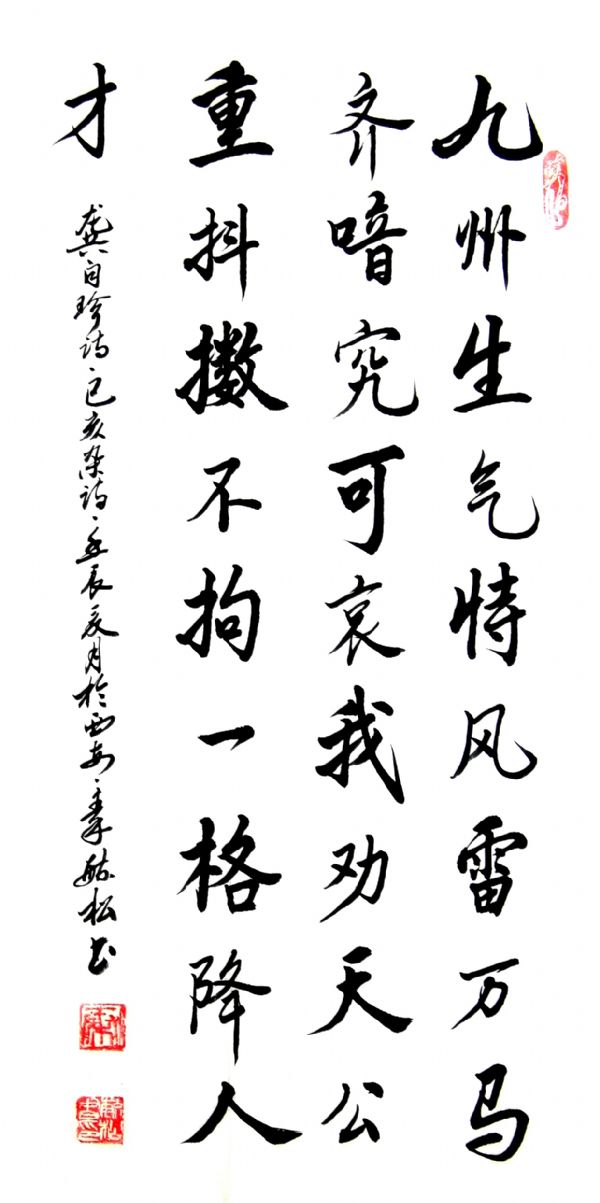 九州生气恃风雷万马
齐喑究可哀我劝天公
重抖擞不拘一格降人
才
龚自珍诗、己亥杂诗、壬辰夏月於西安、松书